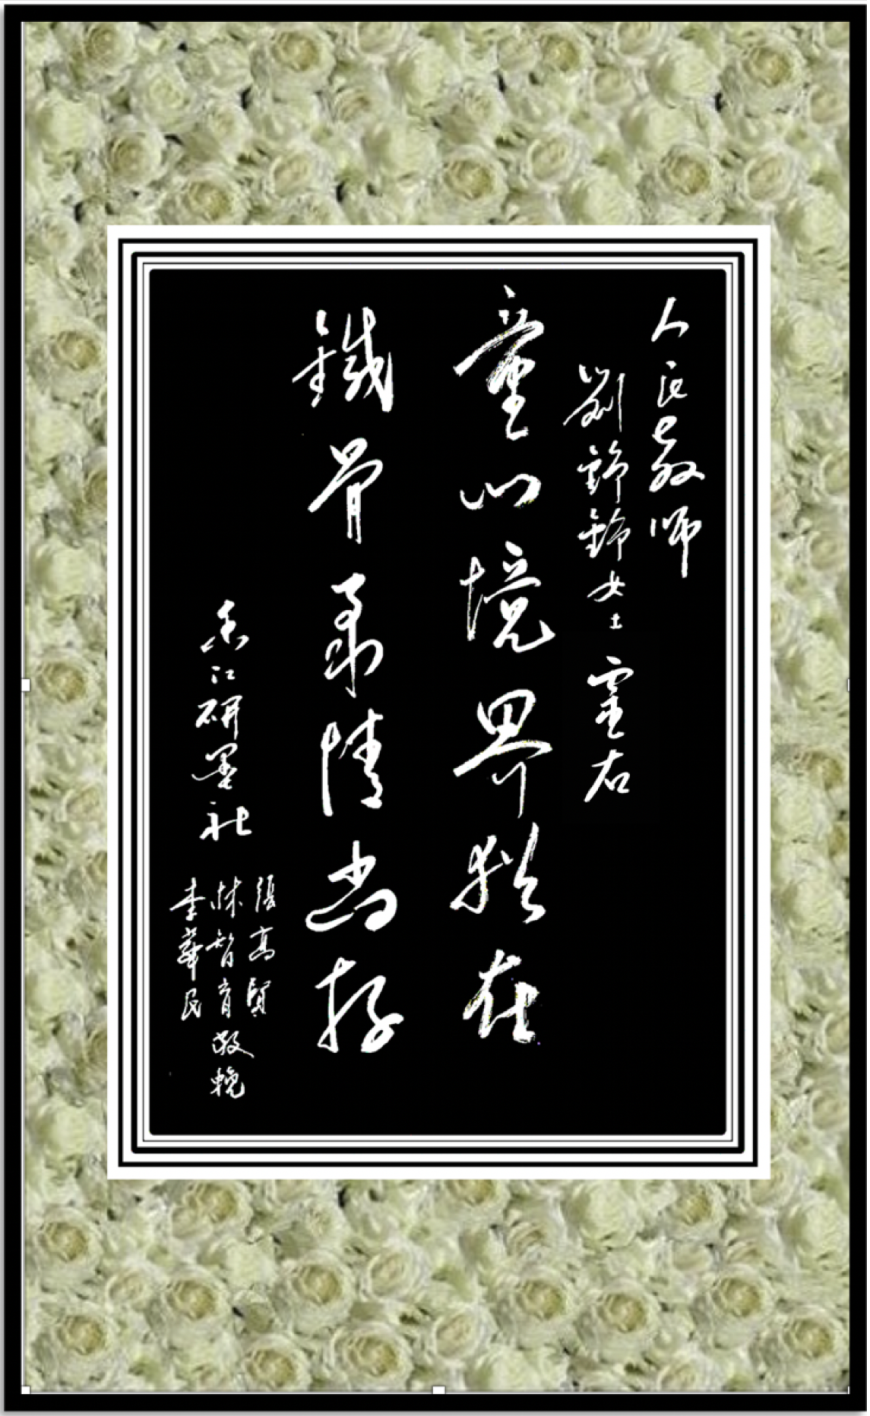 人民教師
劉錚錚女士靈右
童心境界猶在
鐵骨柔情尚存
香江研墨社
張高賢
林智育敬輓
李華民